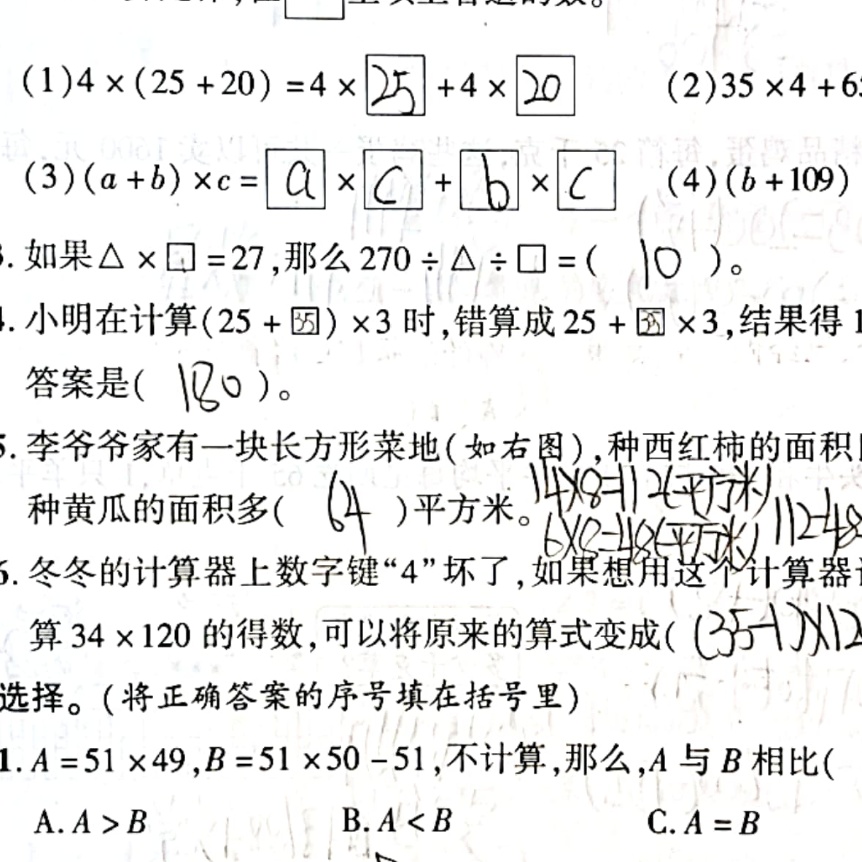 (1)4×(25+20)=4×25+4×20 (2)35×4+6
(3)(a+b)×c=a×c+b×c (4)(b+109)
3.如果△×□=27,那么270÷△÷□=(10)。
4.小明在计算(25+35)×3时,错算成25+35×3,结果得1
答案是(180)。
5.李爷爷家有一块长方形菜地(如右图),种西红柿的面积
种黄瓜的面积多(64)平方米。14×8=112(平方米)
6×8=48(平方米) 112-48
6.冬冬的计算器上数字键“4”坏了,如果想用这个计算器
算34×120的得数,可以将原来的算式变成((35-1)×12
选择。(将正确答案的序号填在括号里)
1.A=51×49,B=51×50-51,不计算,那么,A与B相比(
A.A>B B.A<B C.A=B